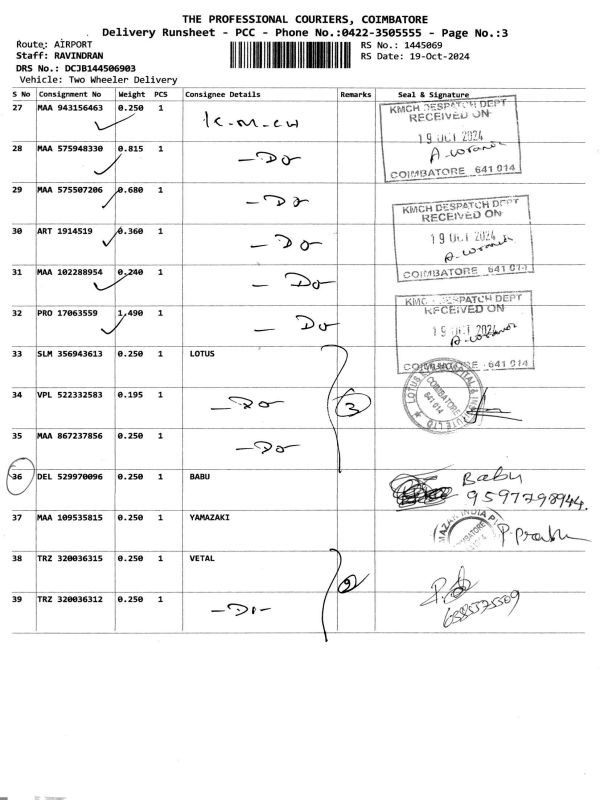 THE PROFESSIONAL COURIERS, COIMBATORE
Delivery Runsheet - PCC - Phone No.:0422-3505555 - Page No.:3
Route: AIRPORT
RS No.: 1445069
Staff: RAVINDRAN
RS Date: 19-Oct-2024
DRS No.: DCJB144506903
Vehicle: Two Wheeler Delivery
S No Consignment No Weight PCS Consignee Details Remarks Seal & Signature
27 MAA 943156463 0.250 1 K.M.CH
KMCH DESPATCH DEPT
RECEIVED ON
19 OCT 2024
COIMBATORE 641 014
28 MAA 575948330 0.815 1 -Do
29 MAA 575507206 0.680 1 -Do
KMCH DESPATCH DEPT
RECEIVED ON
19 OCT 2024
COIMBATORE 641 014
30 ART 1914519 0.360 1 -Do
31 MAA 102288954 0.240 1 -Do
32 PRO 17063559 1.490 1 -Do
KMCH DESPATCH DEPT
RECEIVED ON
19 OCT 2024
COIMBATORE 641 014
33 SLM 356943613 0.250 1 LOTUS
34 VPL 522332583 0.195 1 -Do 3
COIMBATORE
641 014
35 MAA 867237856 0.250 1 -Do
36 DEL 529970096 0.250 1 BABU Babu
9597798944.
37 MAA 109535815 0.250 1 YAMAZAKI P.Prabhu
38 TRZ 320036315 0.250 1 VETAL 2
39 TRZ 320036312 0.250 1 -Do-